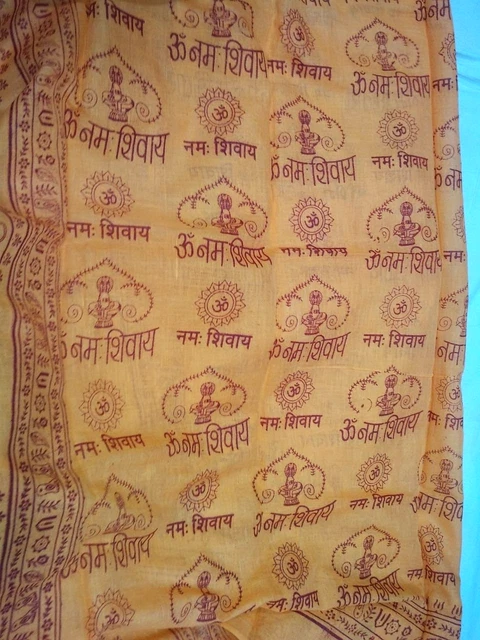 नमः शिवाय
ॐ नमः शिवाय
नमः शिवाय
ॐ नमः शिवाय
ॐ नमः शिवाय
नमः शिवाय
ॐ नमः शिवाय
नमः शिवाय
नमः शिवाय
ॐ नमः शिवाय
नमः शिवाय
ॐ नमः शिवाय
ॐ नमः शिवाय
नमः शिवाय
ॐ नमः शिवाय
नमः शिवाय
नमः शिवाय
ॐ नमः शिवाय
नमः शिवाय
ॐ नमः शिवाय
ॐ नमः शिवाय
नमः शिवाय
ॐ नमः शिवाय
नमः शिवाय
ॐ
नमः शिवाय
ॐ नमः शिवाय
नमः शिवाय